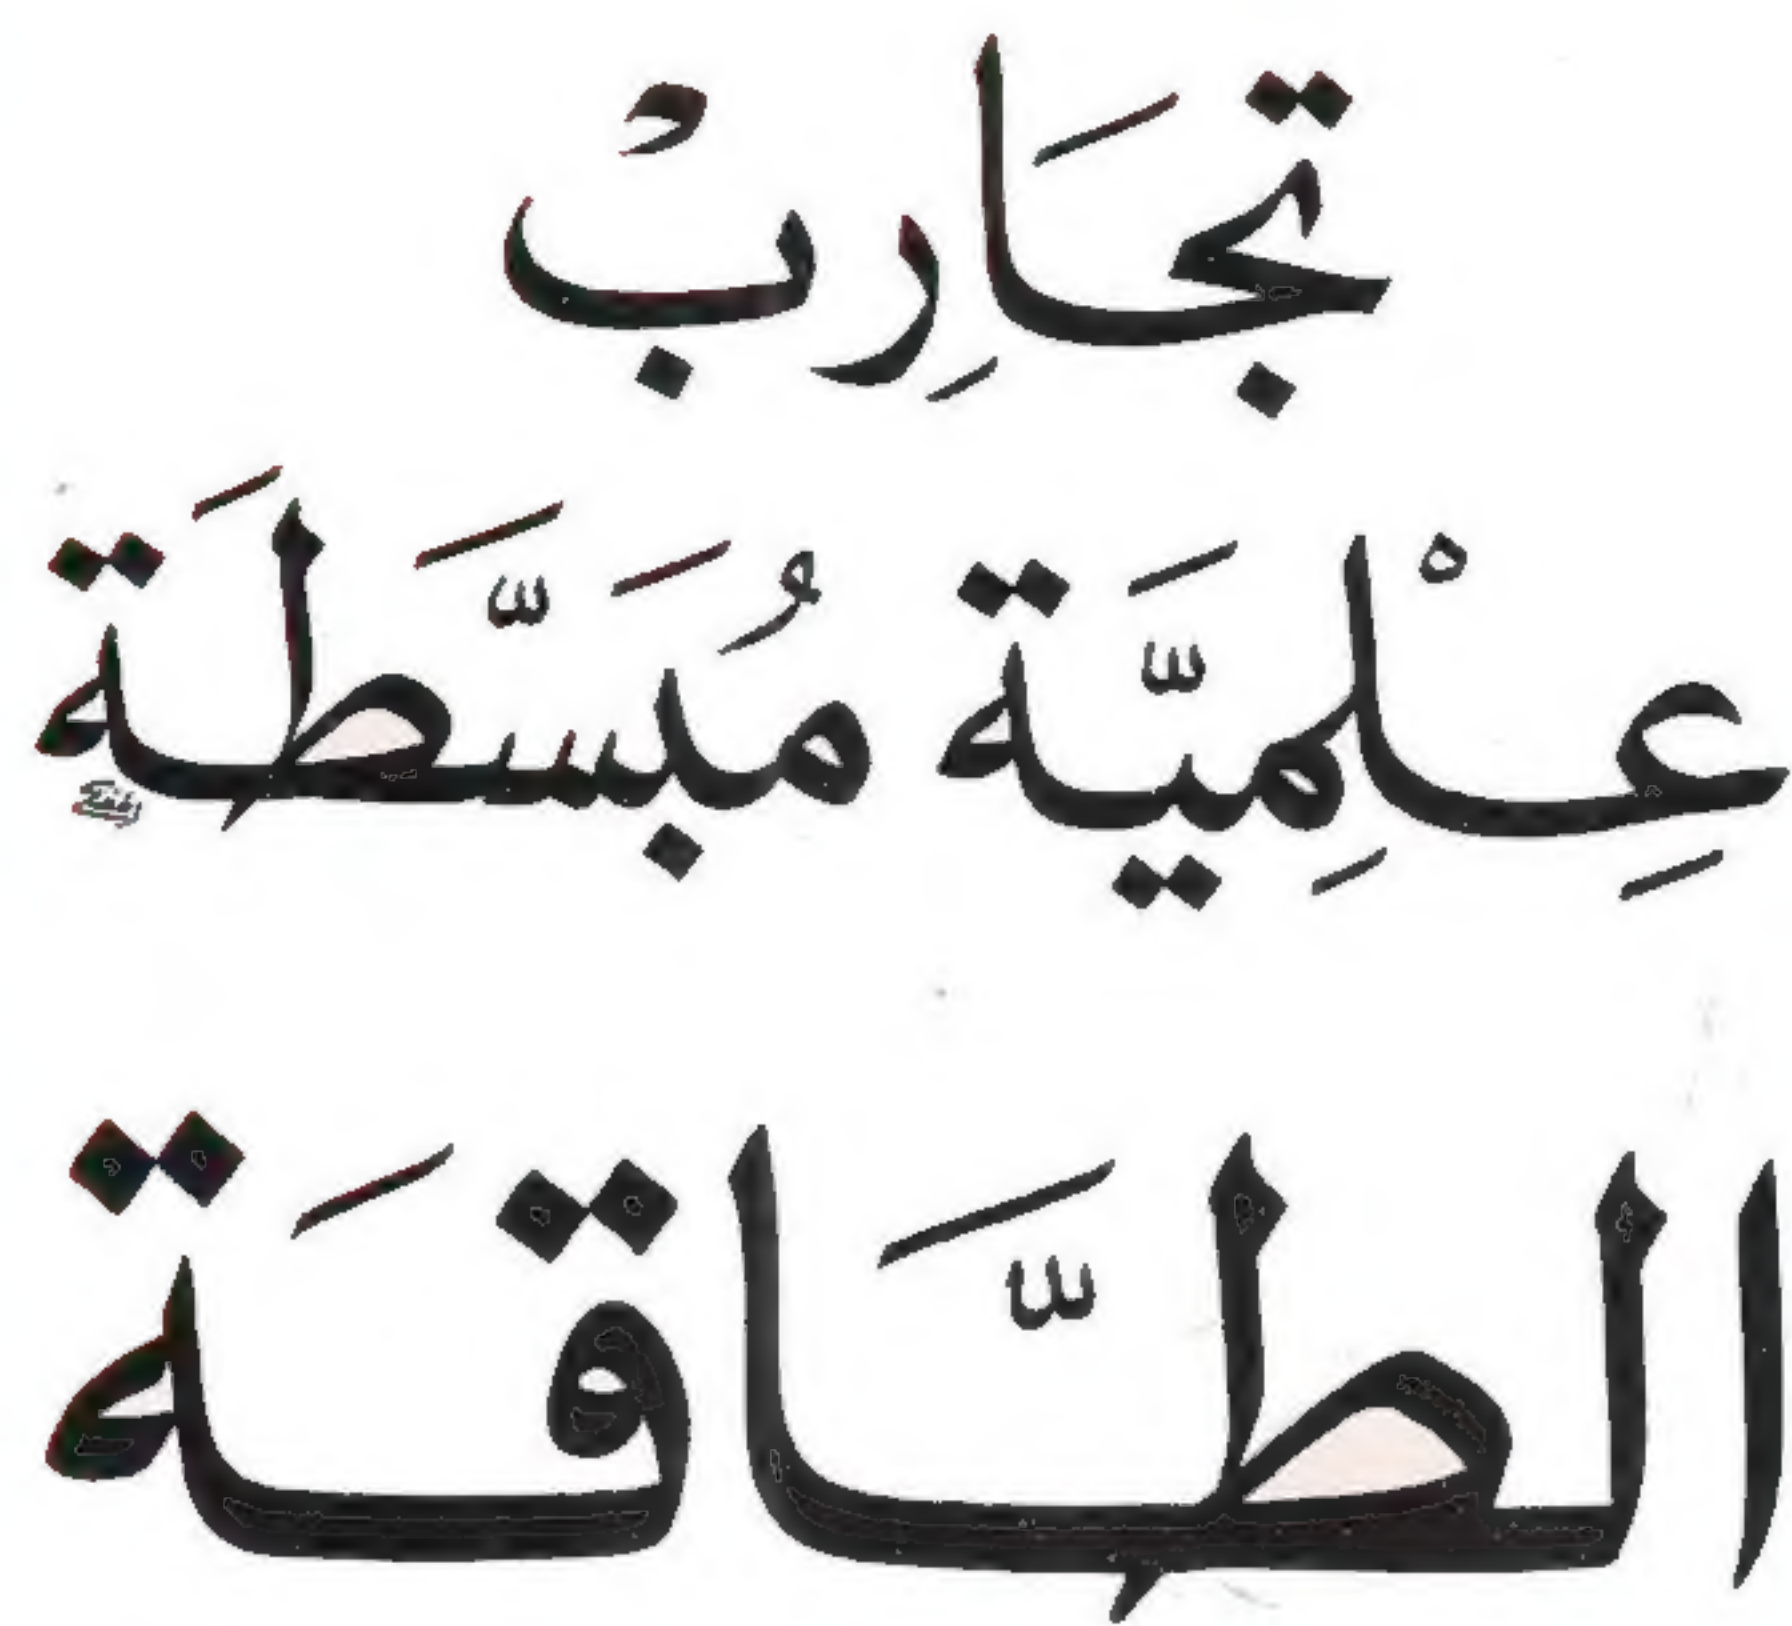 تَجَارِبْ
عِلْمِيَّة مُبَسَّطَة
الطَّاقَة